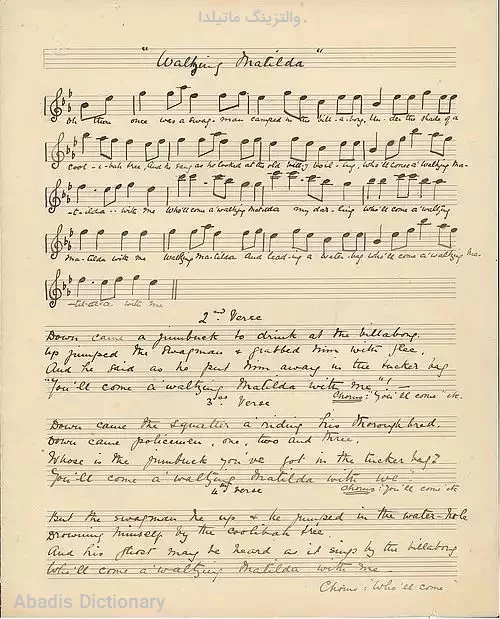 والتزینگ ماتیلدا.
"Waltzing Matilda"
Oh there once was a swag-man camped in the bill-a-bong, Un-der the shade of a
cool-i-bah tree, And he sang as he looked at the old billy boil-ing, Who'll come a' waltzing Ma-
-til-da with me Who'll come a waltzing Matilda my dar-ling Who'll come a' waltzing
Ma-tilda with me Waltzing Ma-tilda And lead-ing a water-bag Who'll come a' waltzing Ma-
-til-d-a with me
2nd Verse
Down came a jumbuck to drink at the billabong
Up jumped the swagman & grabbed him with glee,
And he said as he put him away in the tucker bag
"You'll come a' waltzing Matilda with me"! —
Chorus: 'You'll come' etc.
3rd Verse
Down came the squatter a' riding his thoroughbred.
Down came policemen, one, two and three.
Whose is the jumbuck you've got in the tucker bag?
You'll come a waltzing Matilda with we".
Chorus: 'You'll come etc
4th Verse
But the swagman he up & he jumped in the water-hole
Drowning himself by the coolibah tree.
And his ghost may be heard as it sings by the billabong
Who'll come a' waltzing Matilda with me
Chorus: 'Who'll come"
Abadis Dictionary